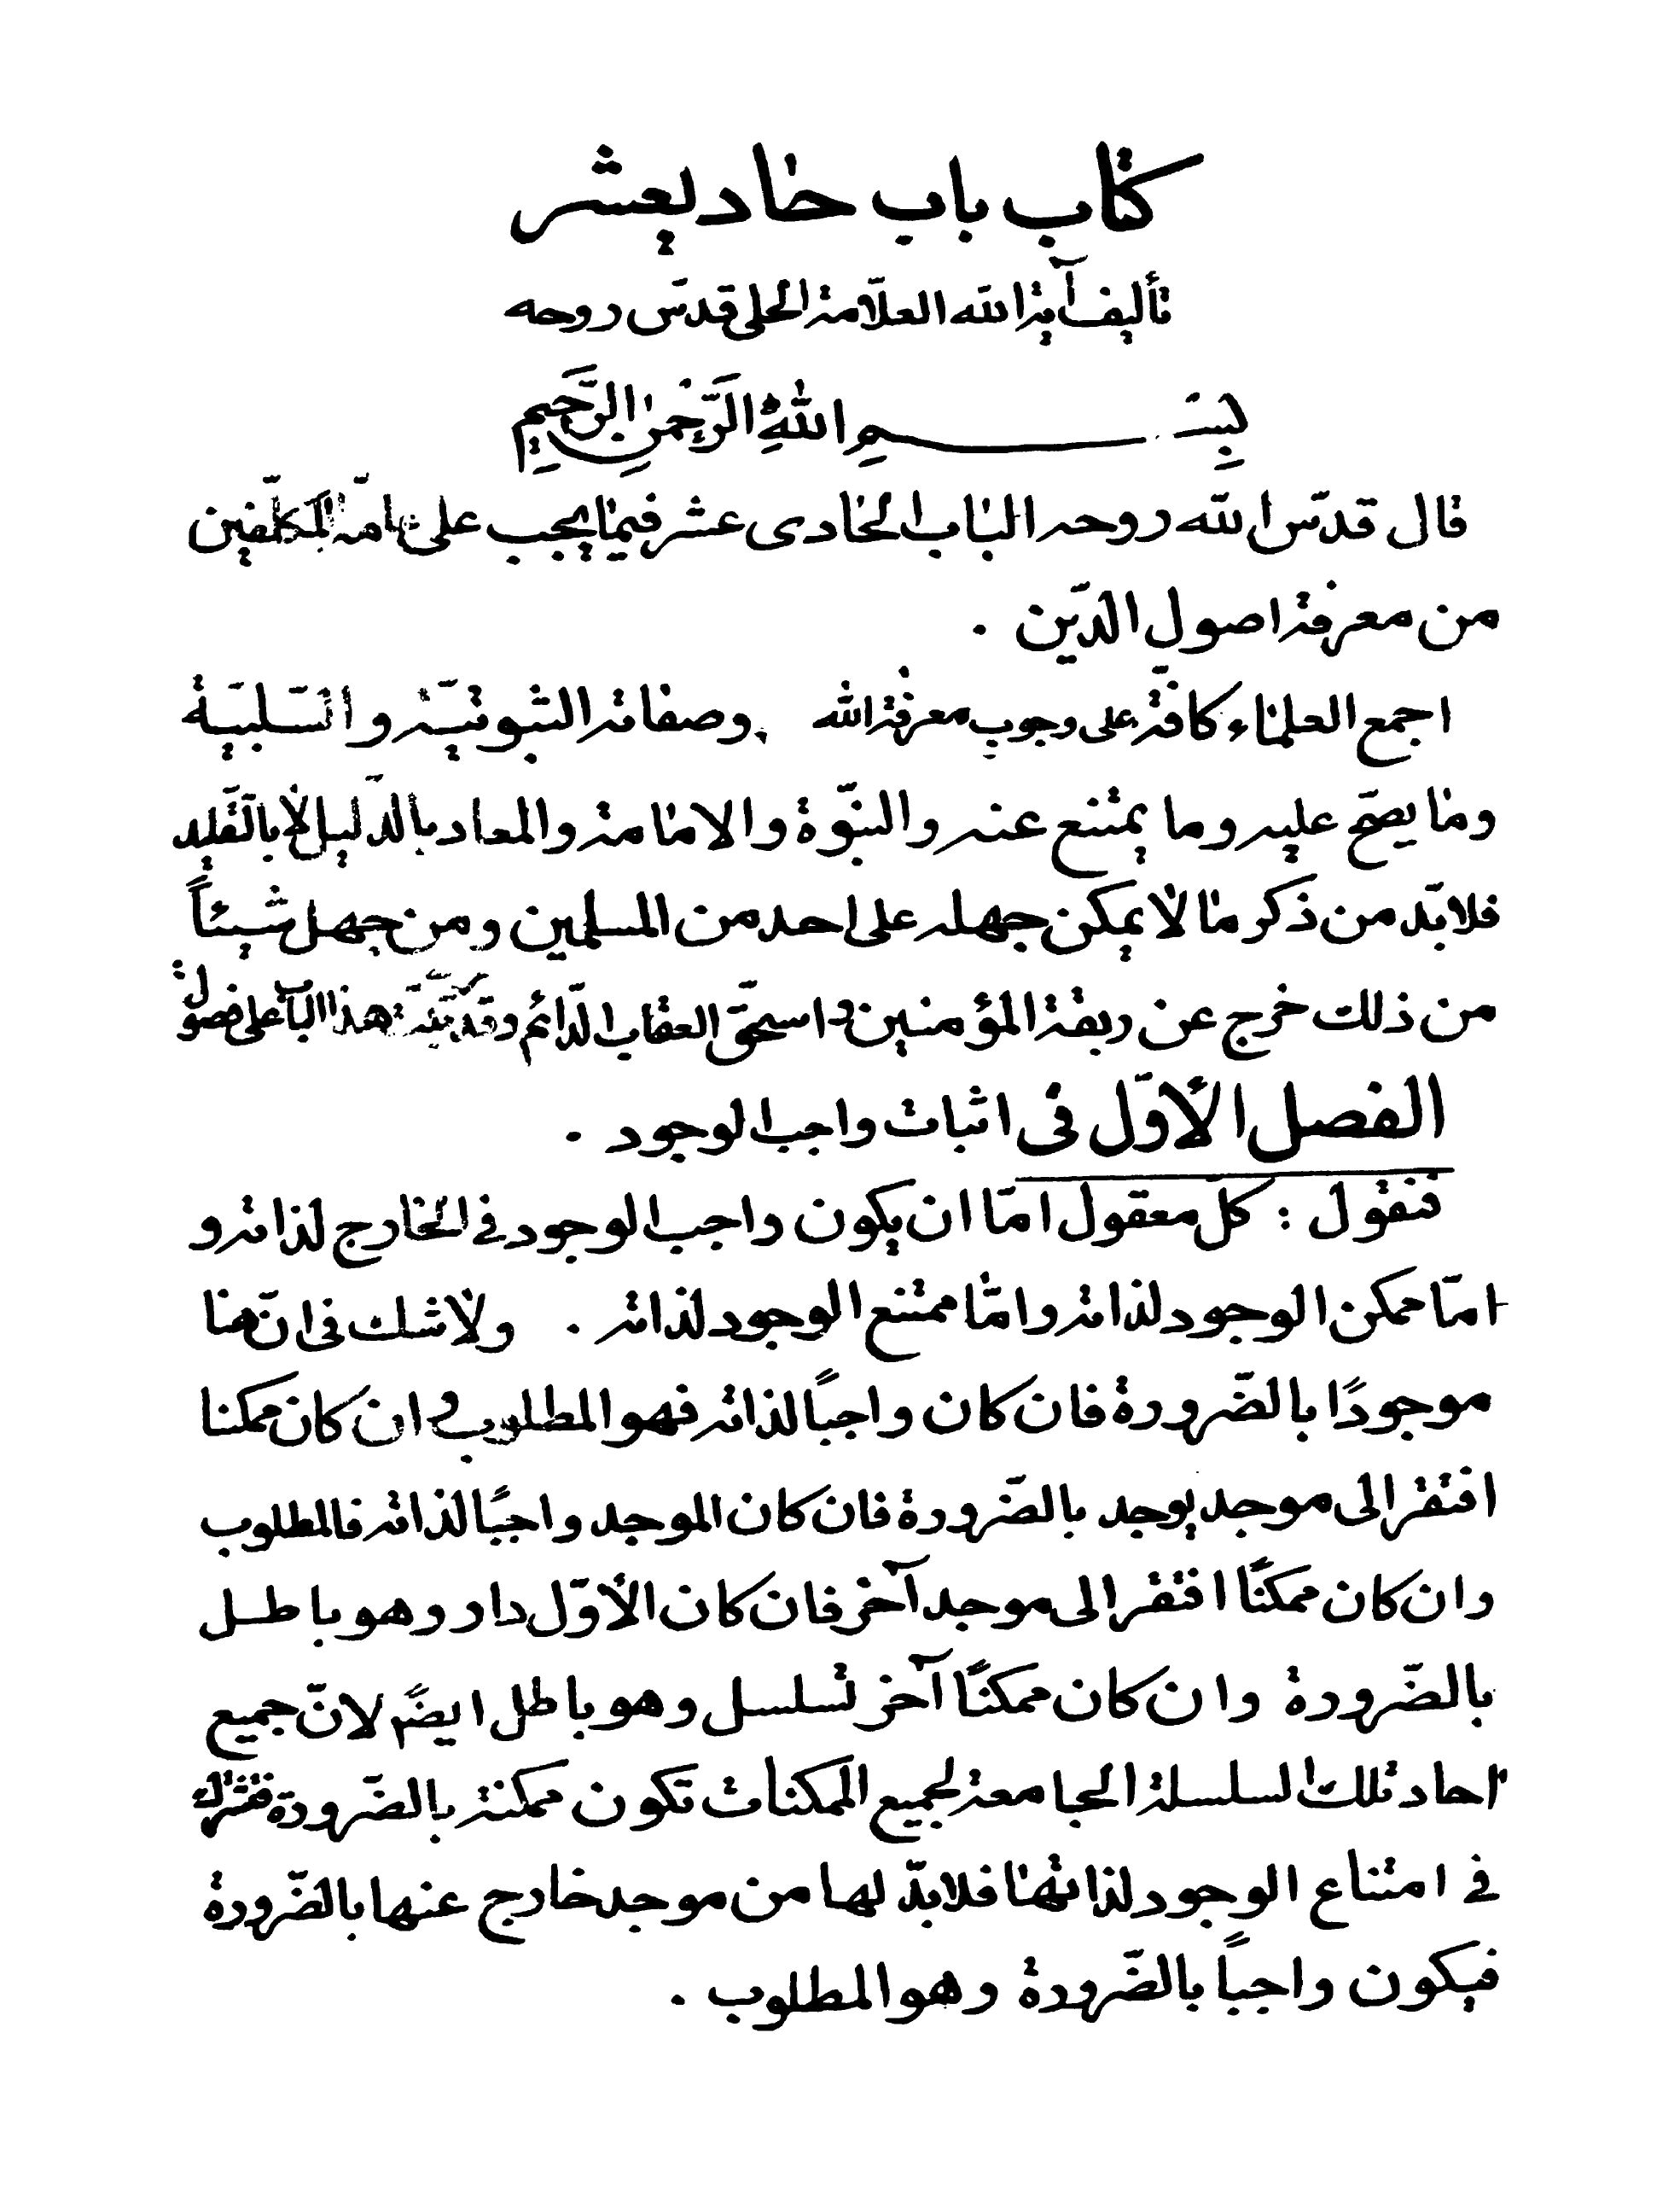 كتاب باب حاديعشر
تأليف آية الله العلّامة الحلی قدسّ روحه
بِسْمِ اللهِ الرَّحْمنِ الرَّحيمِ
قال قدسّ الله روحه الباب الحادی عشر فيما يجب علی عامّة المكلّفين
من معرفة اصول الدّين .
اجمع العلماء كافّة علی وجوب معرفة الله وصفاته الثبوتيّة والسّلبيّة
وما يصحّ عليه وما يمتنع عنه والنبوّة والامامة والمعاد بالدّليل لا بالتّقليد
فلابدّ من ذكر ما لا يمكن جهله علی احد من المسلمين ومن جهل شيئاً
من ذلك خرج عن ربقة المؤمنين واستحقّ العقاب الدّائم وقد رتّبت هذا الباب علی فصول
الفصل الأوّل فی اثبات واجب الوجود .
فنقول : كلّ معقول امّا ان يكون واجب الوجود فی الخارج لذاته و
امّا ممكن الوجود لذاته وامّا ممتنع الوجود لذاته . ولا شك فی انّ هنا
موجودًا بالضّرورة فان كان واجبًا لذاته فهو المطلوب و ان كان ممكنا
افتقر الی موجد يوجد بالضّرورة فان كان الموجد واجبًا لذاته فالمطلوب
وان كان ممكنًا افتقر الی موجد آخر فان كان الأوّل دار وهو باطل
بالضّرورة وان كان ممكنًا آخر تسلسل وهو باطل ايضًا لانّ جميع
احاد تلك السلسلة الجامعة لجميع الممكنات تكون ممكنة بالضّرورة فتشترك
فی امتناع الوجود لذاتها فلابدّ لها من موجد خارج عنها بالضّرورة
فيكون واجباً بالضّرورة وهو المطلوب .